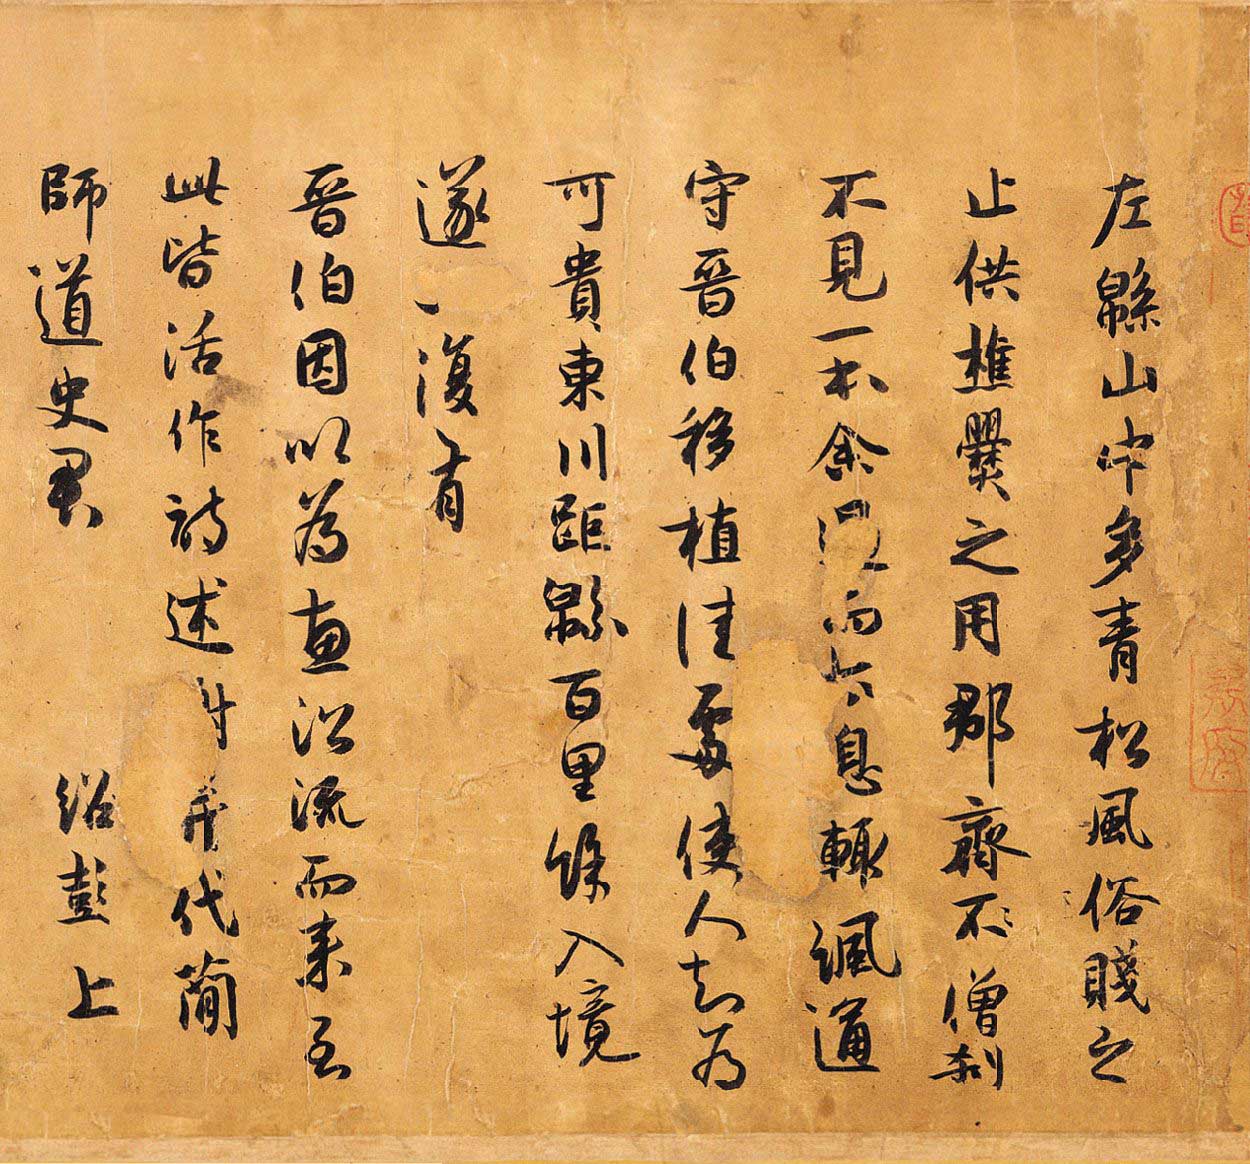 左緜山中多青松風俗賤之
止供樵爨之用郡齋不僧刹
不見一本余過而太息輙諷通
守晉伯移植佳處使人知為
可貴東川距緜百里餘入境
遂不復有
晉伯因以為惠沿流而来至
此皆活作詩述謝并代簡
師道史君
紹彭上